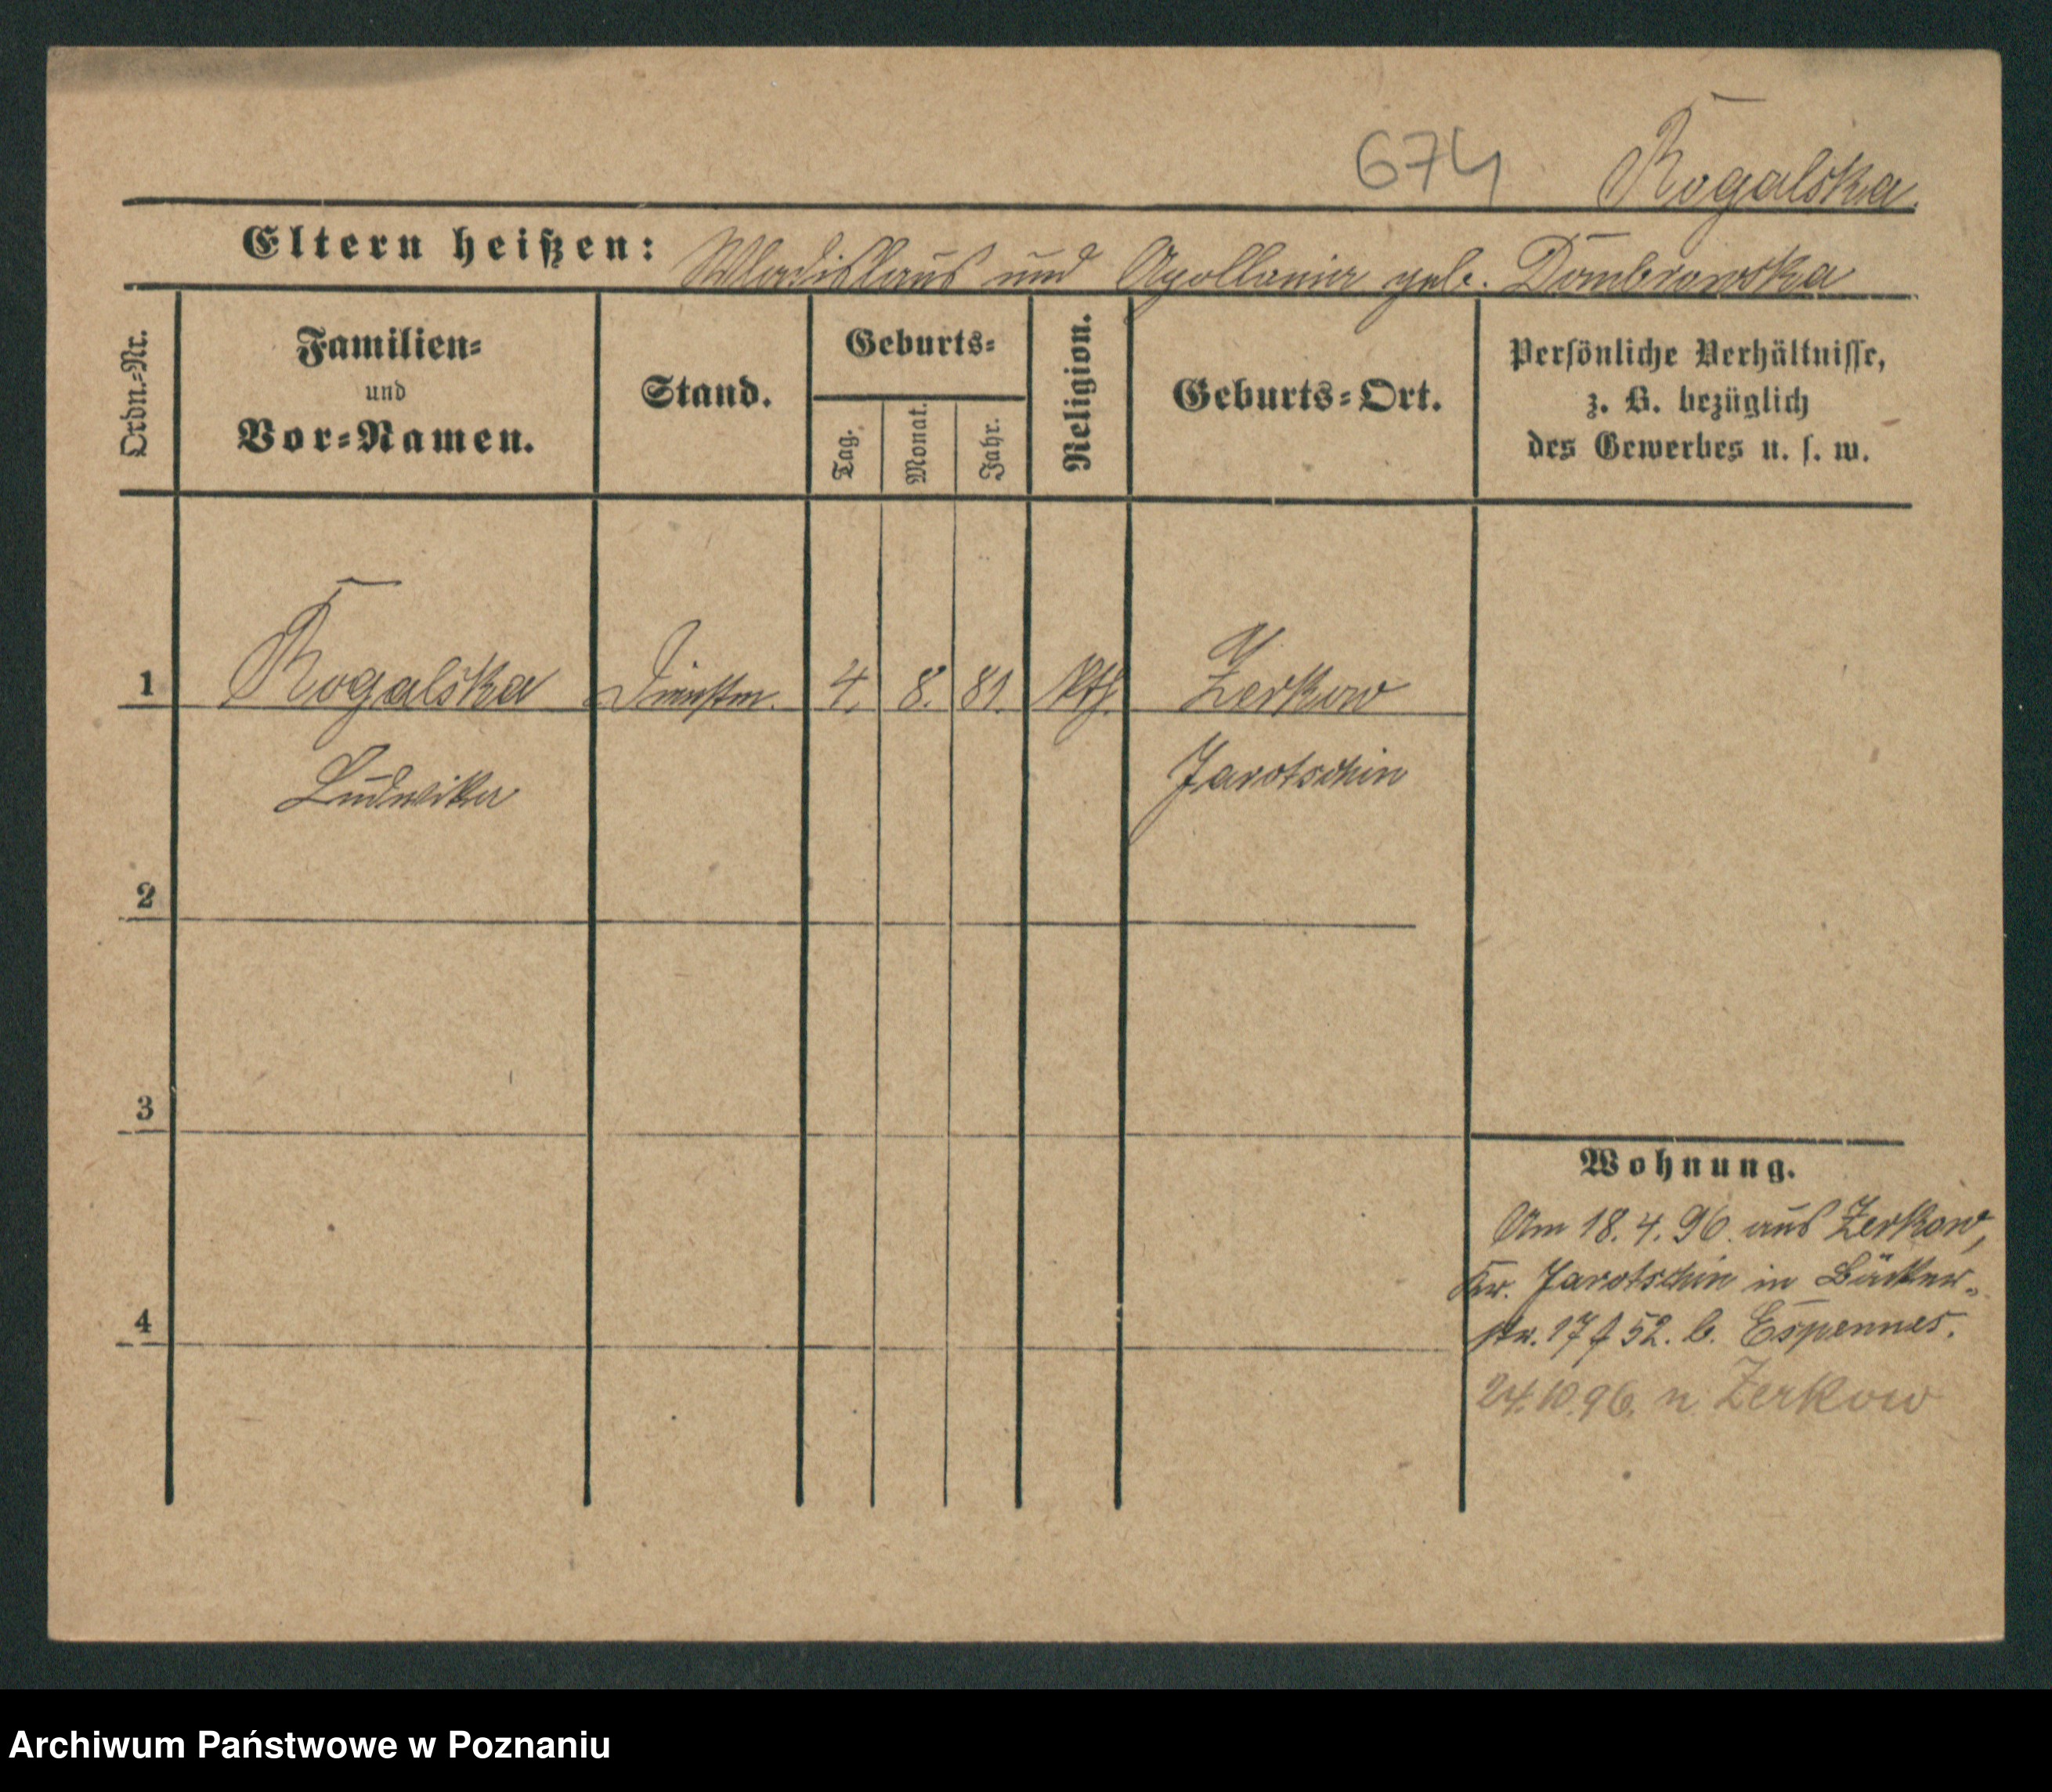 674 Rogalska.
Eltern heißen: Wladislaus und Apollonia geb. Dombrowska
Ordn.-Nr.
Familien-
und
Vor-Namen.
Stand.
Geburts-
Tag.
Monat.
Jahr.
Religion.
Geburts-Ort.
Persönliche Verhältnisse,
z. B. bezüglich
des Gewerbes u. s. w.
1 Rogalska Dienstm. 4. 8. 81. kth. Zerkow
Ludwika Jarotschin
2
3
4
Wohnung.
Am 18. 4. 96. aus Zerkow,
Kr. Jarotschin in Bäcker-
str. 17 52. b.
24.10.96. n. Zerkow
Archiwum Państwowe w Poznaniu